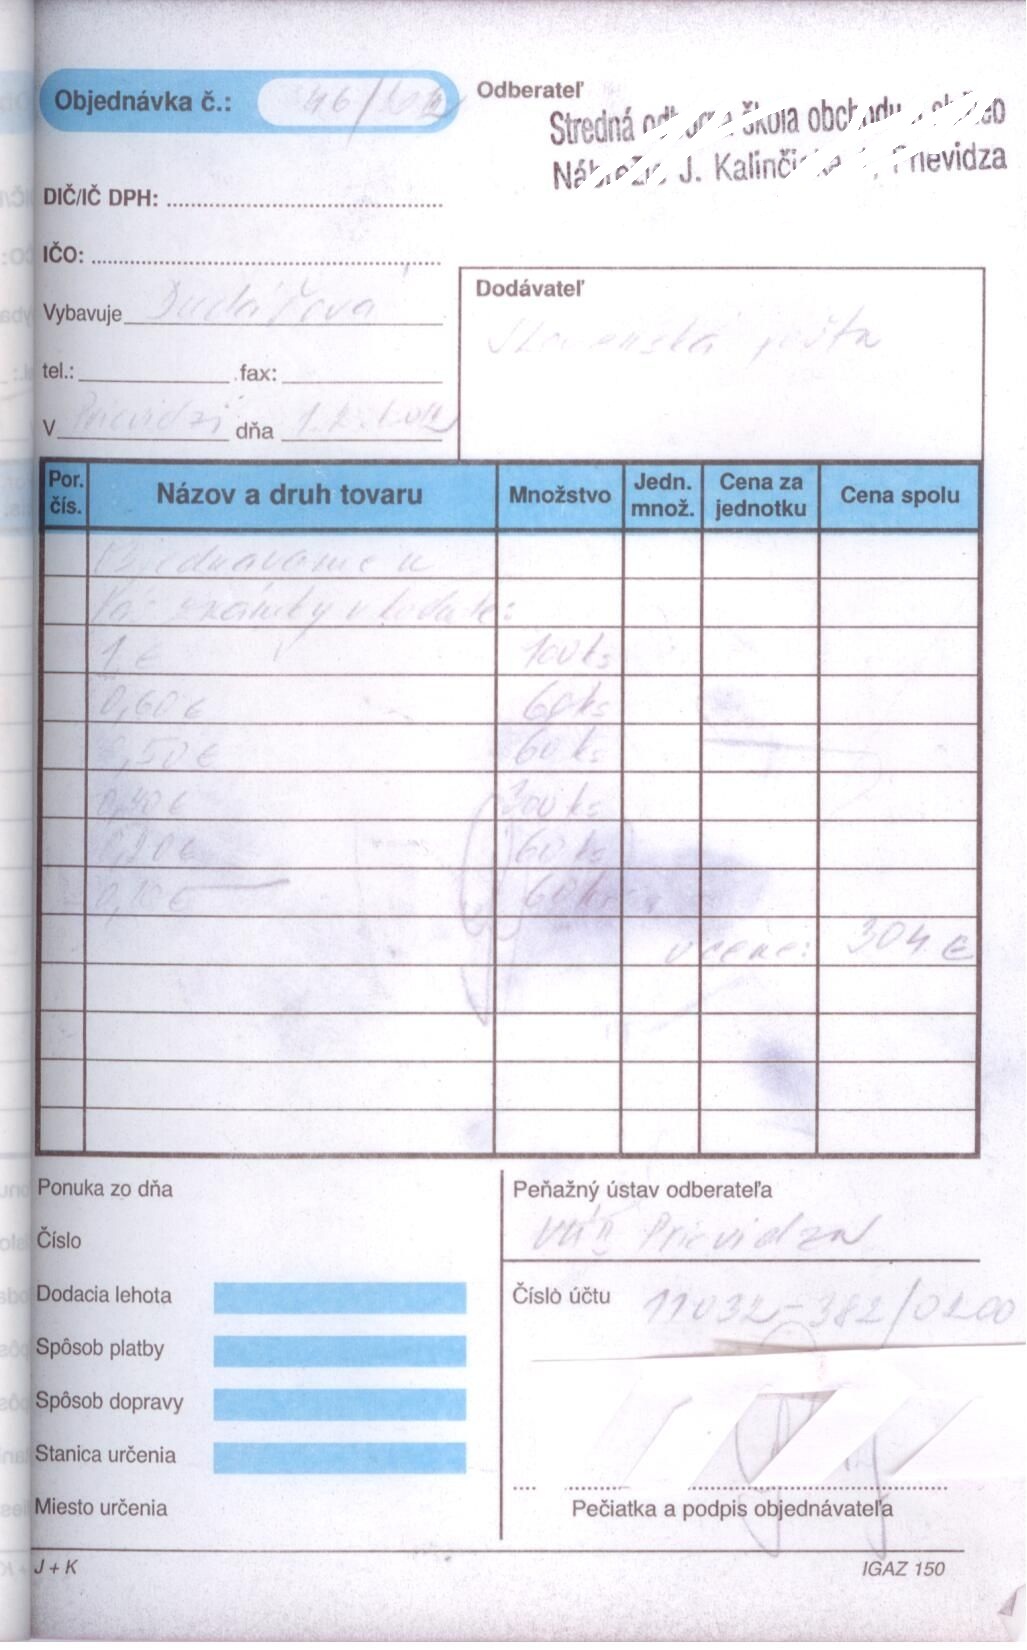 Objednávka č.: 46/2012
Odberateľ
Stredná odborná škola obchodu a služieb
Nábrežie J. Kalinčiaka 1, Prievidza
DIČ/IČ DPH:
IČO:
Vybavuje
Dodávateľ
Slovenská pošta
tel.: fax:
V Prievidzi dňa
Por. čís. Názov a druh tovaru Množstvo Jedn. množ. Cena za jednotku Cena spolu
Objednávame u
Vás známky v hodnote:
1 € 100 ks
0,60 € 60 ks
0,50 € 60 ks
0,40 € 300 ks
0,20 € 60 ks
0,10 € 60 ks
v cene: 304 €
Ponuka zo dňa
Peňažný ústav odberateľa
VÚB Prievidza
Číslo
Dodacia lehota
Číslo účtu 11032-382/0200
Spôsob platby
Spôsob dopravy
Stanica určenia
Miesto určenia
Pečiatka a podpis objednávateľa
J + K
IGAZ 150